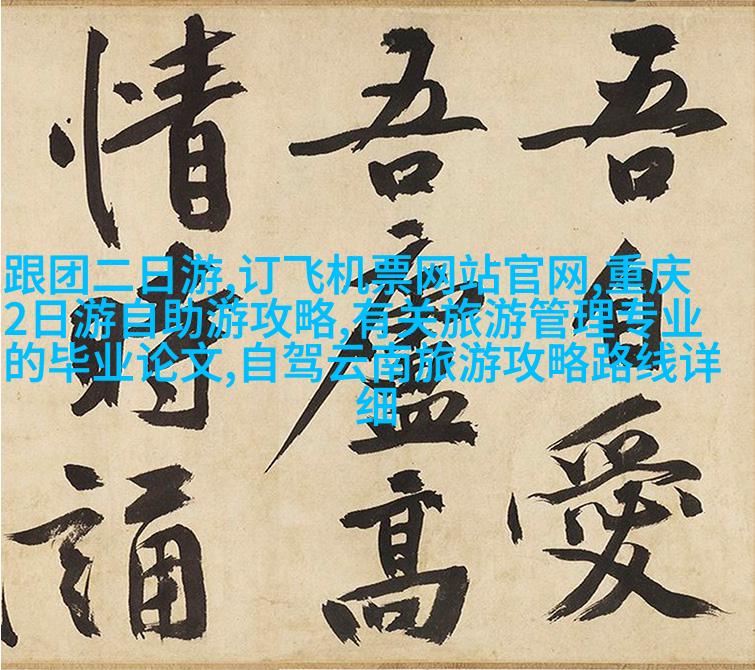 吾自愛
吾廬高
情時誦
跟团二日游,订飞机票网站官网,重庆
2日游自助游攻略,有关旅游管理专业
的毕业论文,自驾云南旅游攻略路线详
细